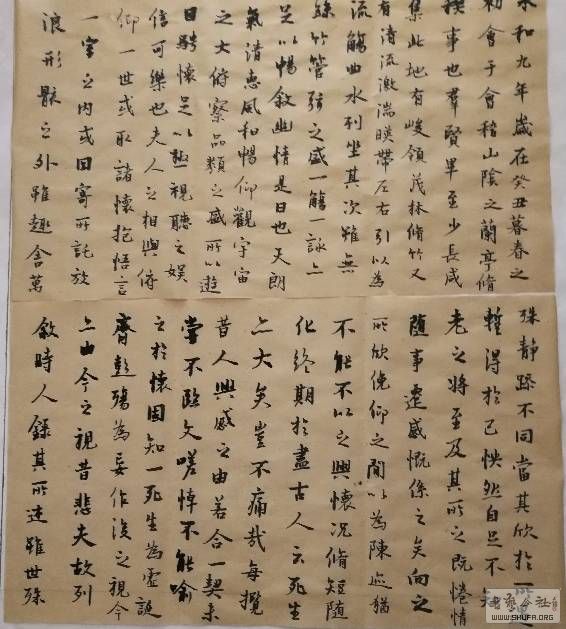 永和九年歲在癸丑暮春之
初會于會稽山陰之蘭亭脩
稧事也羣賢畢至少長咸
集此地有峻領茂林脩竹又
有清流激湍暎帶左右引以為
流觴曲水列坐其次雖無
絲竹管弦之盛一觴一詠亦
足以暢敘幽情是日也天朗
氣清惠風和暢仰觀宇宙
之大俯察品類之盛所以遊
目騁懷足以極視聽之娛
信可樂也夫人之相與俯
仰一世或取諸懷抱悟言
一室之內或因寄所託放
浪形骸之外雖趣舍萬
殊靜躁不同當其欣於
暫得於己怏然自足不
老之將至及其所之既惓情
隨事遷感慨係之矣向之
所欣俛仰之閒以為陳迹猶
不能不以之興懷況脩短隨
化終期於盡古人云死生
亦大矣豈不痛哉每攬
昔人興感之由若合一契未
嘗不臨文嗟悼不能喻
之於懷固知一死生為虛誕
齊彭殤為妄作後之視今
亦由今之視昔悲夫故列
敘時人錄其所述雖世殊
WWW.SHUFA.ORG